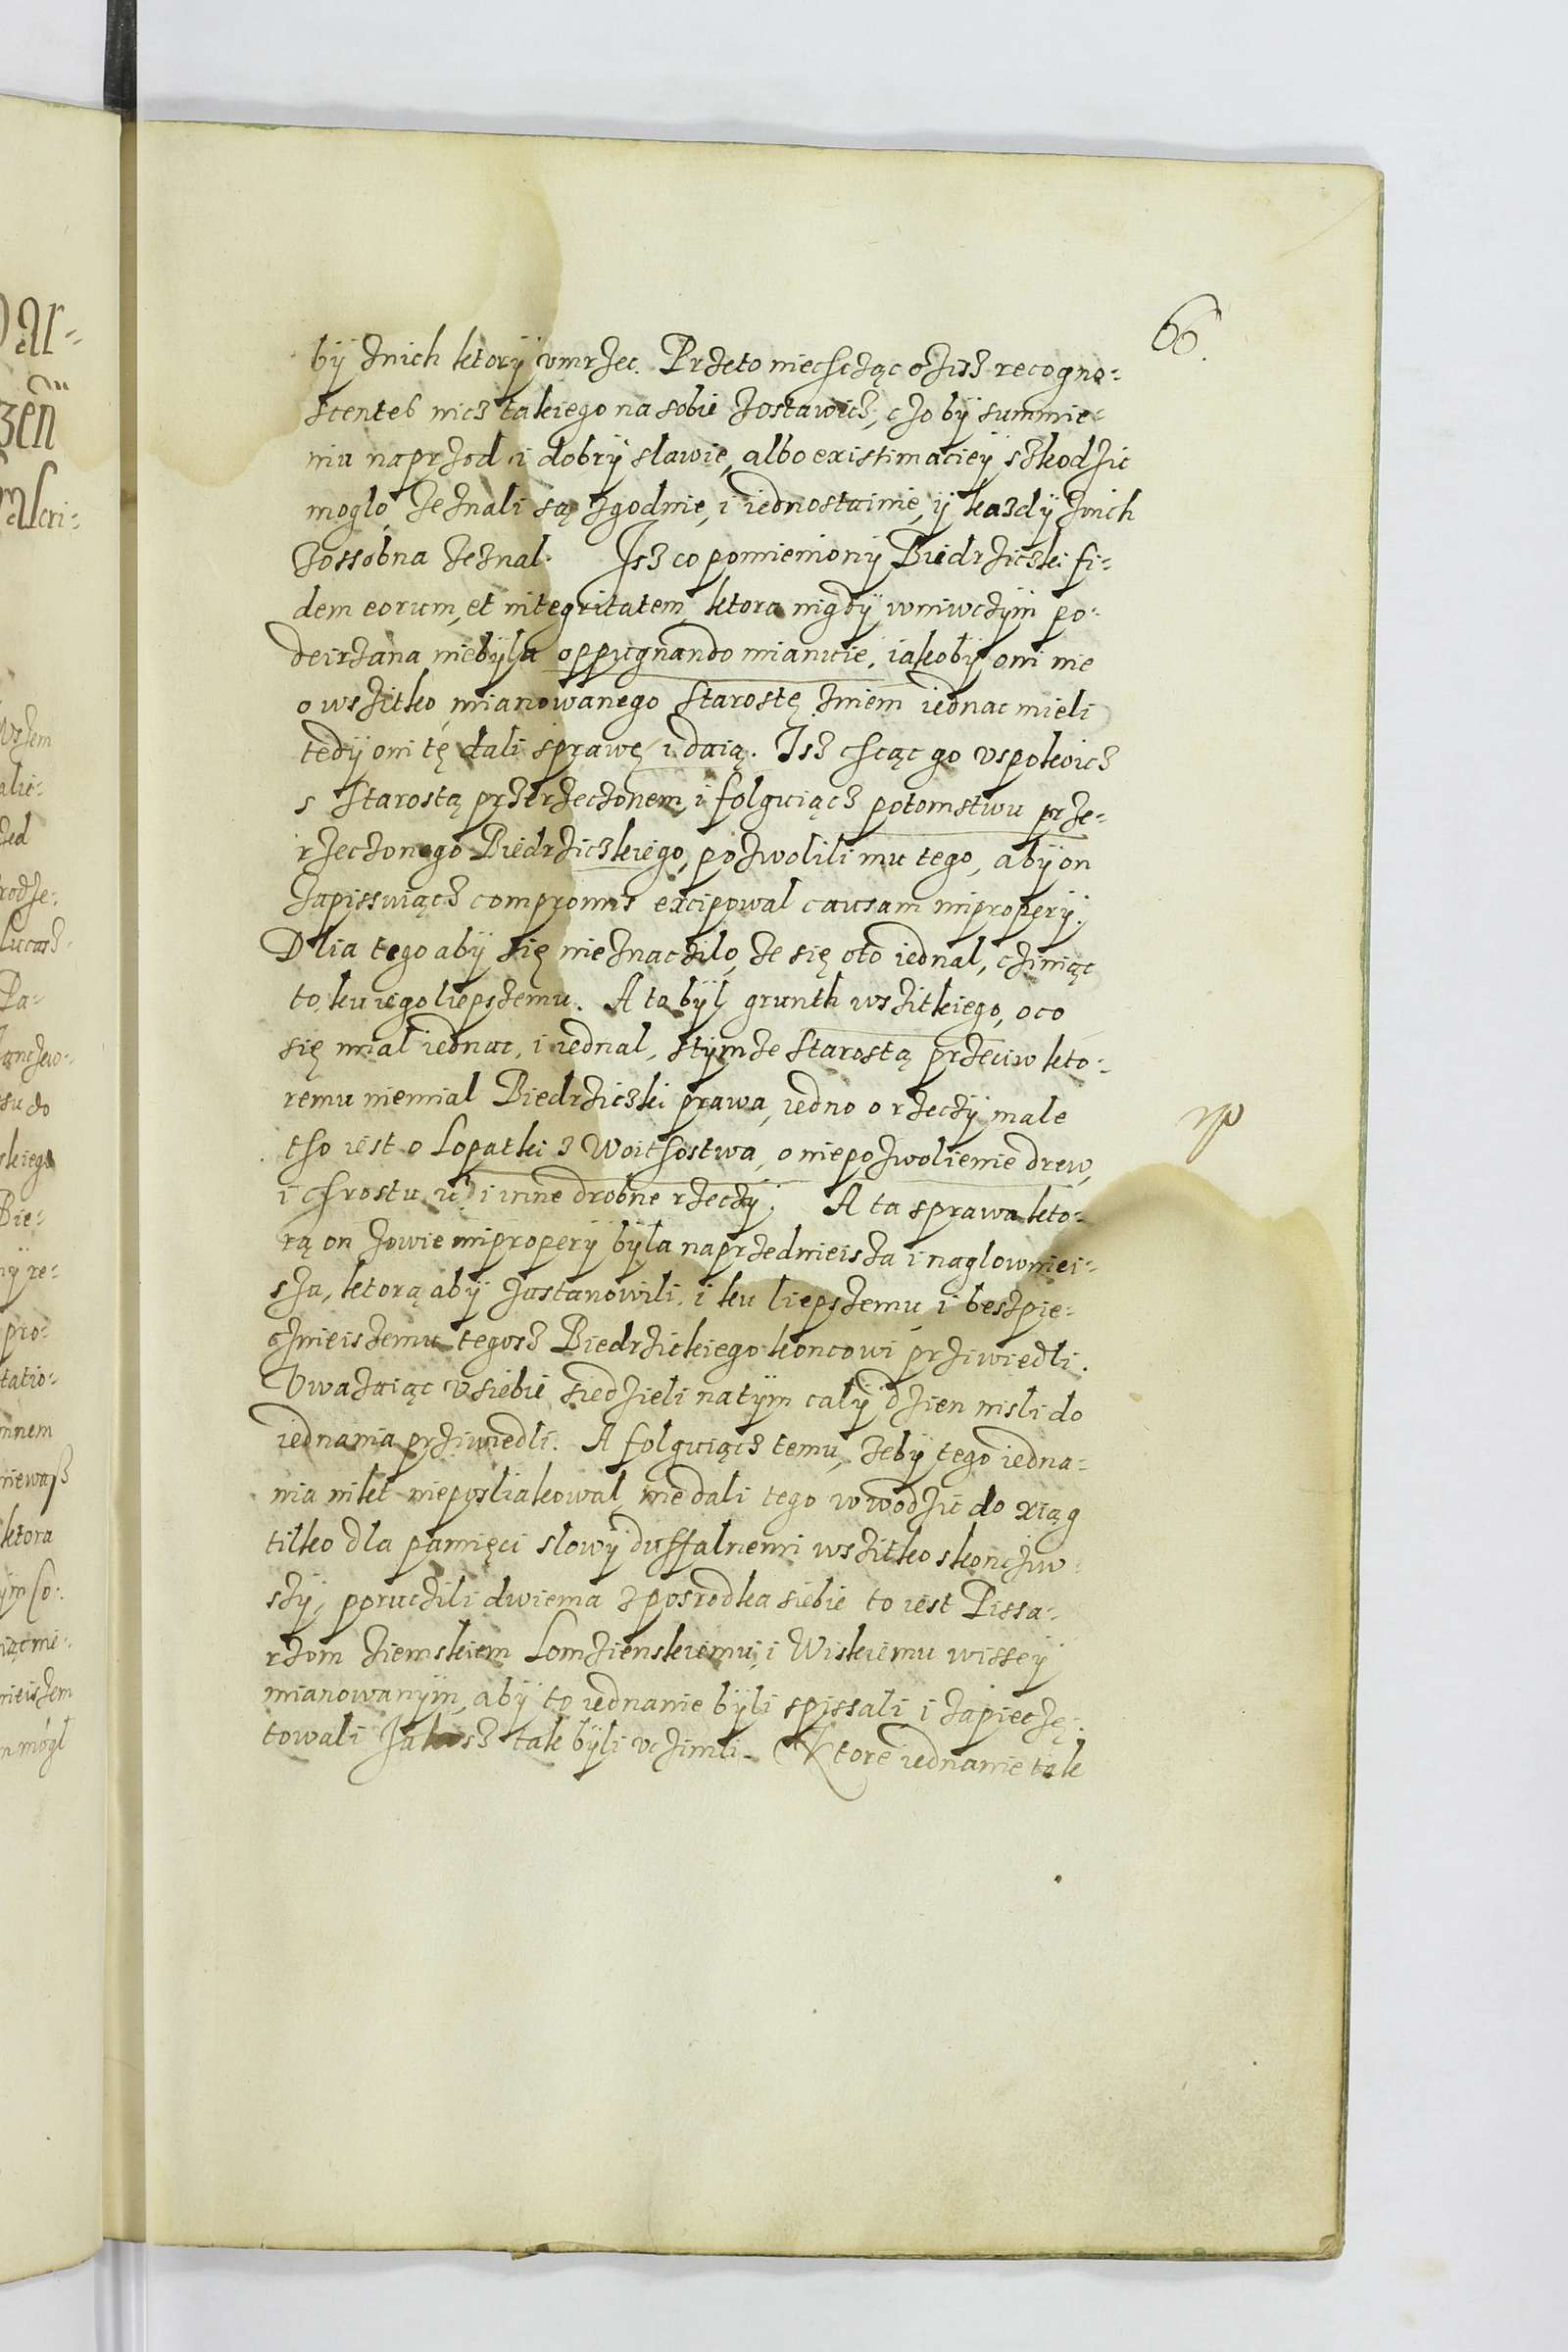 66.
bÿ znich ktorÿ vmrzec. Przeto niechcząc ozisz recogno-
scentes nicz takiego na sobie zostawicz, czo bÿ summie-
niu naprzod i dobrÿ slawie, albo existimacieÿ szkodzic
moglo, zeznali są zgodnie, i iednostainie, ÿ kazdÿ znich
zossobna zeznal. Isz co pomienionÿ Biedrzicski fi-
dem eorum, et integritatem, ktora nigdÿ wniwczÿm po-
deirzana niebÿla oppugnando mianuie, iakobÿ oni nie
o wszitko mianowanego Starostę zniem iednac mieli
tedÿ oni tę dali sprawę i daią. Isz chcąc go vspokoicz
s Starostą przerzeczonem, i folguiącz potomstwu prze-
rzeczonego Biedrzicskiego, pozwolili mu tego, abÿ on
zapissuiącz compromis excipowal causam improperÿ.
Dlia tego abÿ się nieznaczilo, ze się oto iednal, cziniąc
to, ku iego liepszemu. A to bÿl grunth wszitkiego, o co
się mial iednac, i iednal, stÿmze Starostą przeciw kto-
remu niemial Biedrzicski prawa, iedno o rzeczÿ male
tho iest o Lopatki z Woithostwa, o niepozwolienie drew,
i chrostu, i inne drobne rzeczÿ. A ta sprawa kto-
rą on zowie improperÿ bÿla naprzednieisza i naglowniei-
sza, ktorą abÿ zastanowili, i ku liepszemu i beszpie-
cznieiszemu tegosz Biedrzickiego koncowi prziwiedli.
Vwazaiąc v siebie siedzieli natÿm calÿ dzien nisli do
iednania prziwiedli. A folguiącz temu, zebÿ tego iedna-
nia nikt nieposliakowal, nie dali tego wwodzic do xiąg
tilko dla pamięci slowÿ duffalnemi wszitko skoncziw-
szÿ, poruczili dwiema z posrodka siebie to iest Pissa-
rzom ziemskiem Lomzienskiemu, i Wiskiemu wisseÿ
mianowanÿm, abÿ to iednanie bÿli spissali i zapieczę-
towali Jakosz tak bÿli vczinili. Ktore iednanie tak